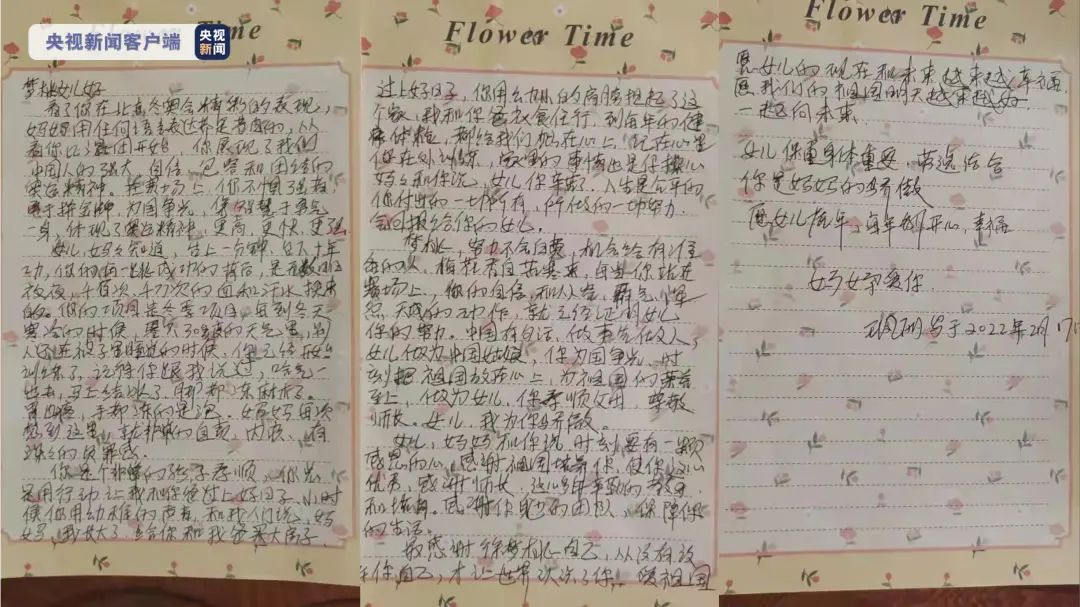 央视新闻客户端
央视新闻
Flower Time
梦桃女儿好
看了你在北京冬奥会精彩的表现,
妈妈用任何语言表达都是苍白的,从
看你比赛开始,你展现了我们
中国人的强大、自信、包容和团结的
奥运精神。在赛场上,你不惧强者
勇于拼金牌,为国争光,
一身,体现了奥运精神,更高、更快、更强
女儿,妈妈知道,台上一分钟,台下十年
功,你的每一跳成功的背后,是无数个日
夜夜,千百次、千万次的血和汗水换来
的。你的项目是冬季项目,每到冬天
寒冷的时候,零下30度的天气里,别
人还在被子里睡觉的时候,你已经开始
训练了,记得你跟我说过,哈气一
出去,马上结冰了,脚都冻麻木了。
手都冻的是泡,妈妈每次
想到这里,就非常的自责,内疚、有
深深的负罪感。
你是个非常的孩子孝顺,你总
是用行动让我和你爸过上好日子,小时
候你用幼稚的声音,和我们说,妈
妈,我长大了,给你和我爸买大房子,
Flower Time
过上好日子,你用幼小的肩膀担起了这
个家,我和你爸衣食住行,到每年的健
康体检,都给我们放在心上,现在心里
你在外训练,家里的事情也是你操心
妈妈和你说,女儿你辛苦了,人生是公平的
你付出的一切所有,你所做的一切努力,
会回报给你的女儿。
梦桃,努力不会白费,机会给有准
备的人,梅花香自苦寒来,每当你站在
赛场上,你的自信、和从容、霸气、
天成的动作,就已经证明女儿
你的努力。中国有句话,做事先做人,
女儿做为中国姑娘,你为国争光,时
刻把祖国放在心上,为祖国的荣誉
至上,做为女儿,你孝顺父母,尊敬
师长。女儿,我为你骄傲。
女儿,妈妈和你说,时刻要有一颗
感恩的心,感谢祖国培养你,使你这么
优秀,感谢师长,这么多年辛勤的教导
和培育。感谢你身边的团队,保障你
的生活。
最感谢徐梦桃自己,从没有放
弃你自己,才让世界认识了你。愿祖国
Flower Time
愿女儿的现在和未来越来越幸福
愿我们的祖国明天越来越好
一起向未来
女儿保重身体重要,劳逸结合
你是妈妈的骄傲
愿女儿虎年,每年都开心、幸福
妈妈爱你
写于2022年2月17日